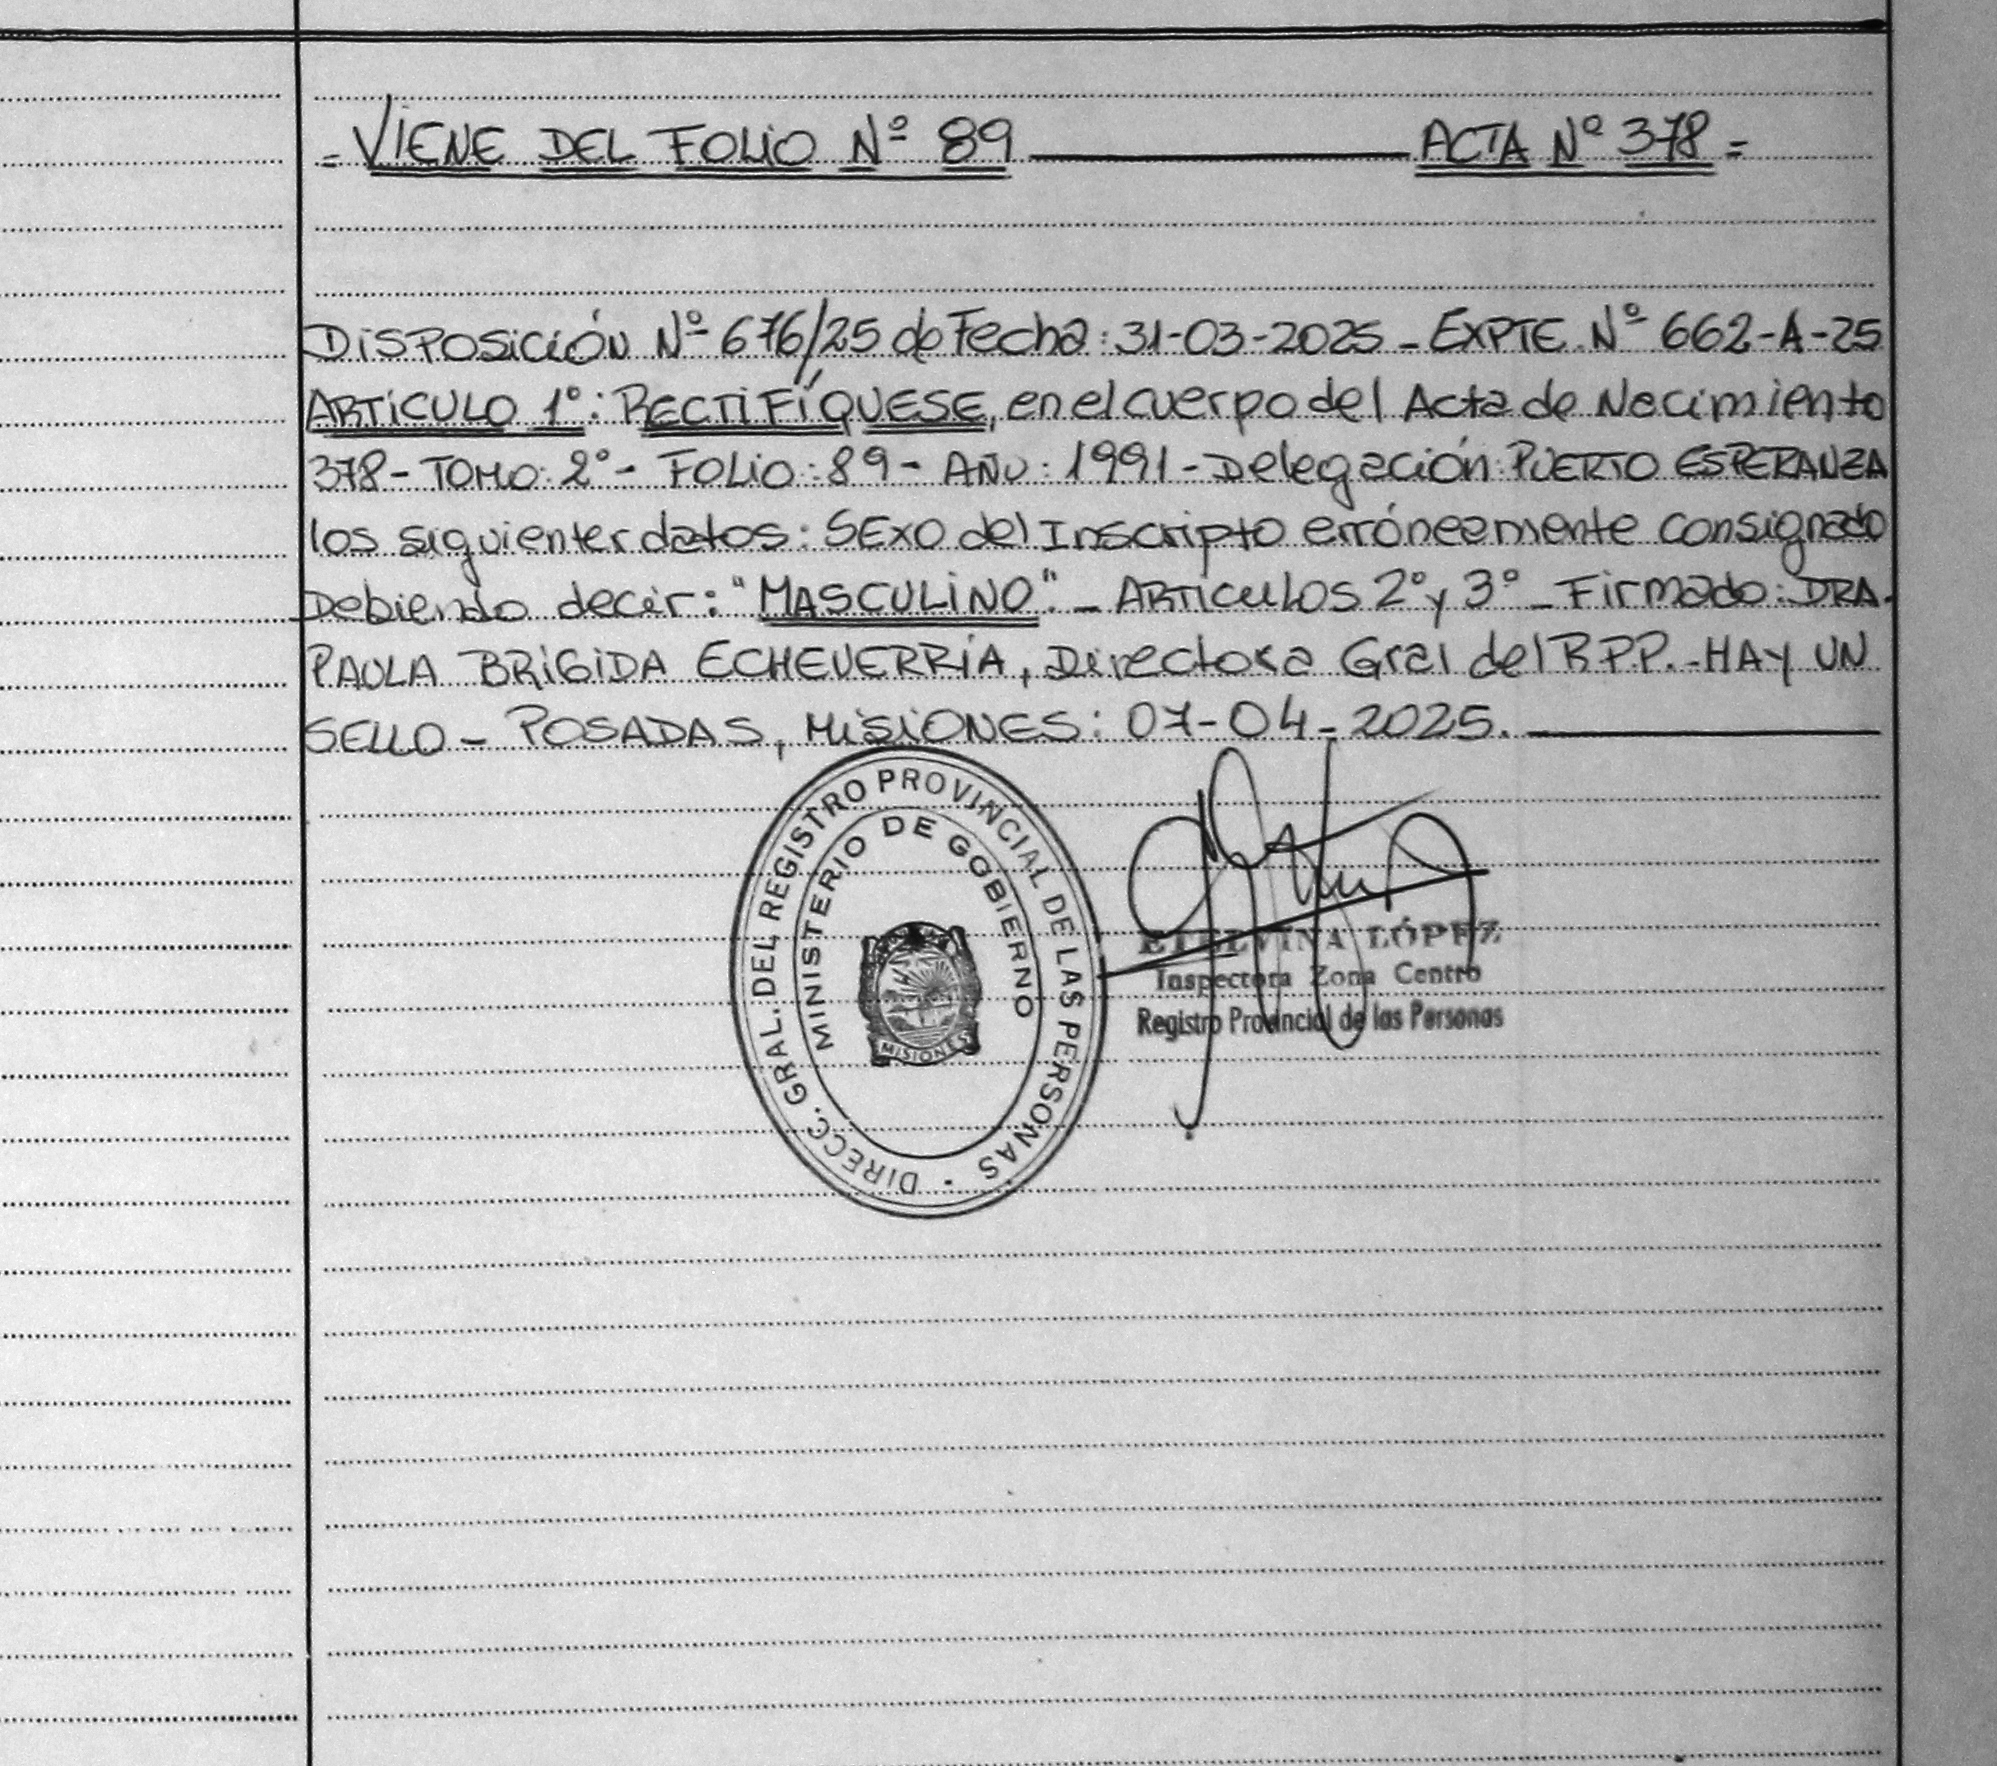 = VIENE DEL FOLIO Nº 89 ACTA Nº 378 =
DISPOSICIÓN Nº 676/25 de Fecha: 31-03-2025 - EXPTE Nº 662-A-25
ARTICULO 1º: RECTIFÍQUESE, en el cuerpo del Acta de Nacimiento
378 - TOMO: 2º - FOLIO: 89 - AÑO: 1991 - Delegación: PUERTO ESPERANZA
los siguientes datos: SExo del Inscripto erróneamente consignado
Debiendo decir: "MASCULINO". - ARTICULOS 2º y 3º - Firmado: DRA.
PAULA BRIGIDA ECHEVERRÍA, Directora Gral del RPP. - HAY UN
SELLO - POSADAS, MISIONES: 07-04-2025.
DIRECC. GRAL. DEL REGISTRO PROVINCIAL DE LAS PERSONAS
MINISTERIO DE GOBIERNO
MISIONES
ETELVINA LÓPEZ
Inspectora Zona Centro
Registro Provincial de las Personas